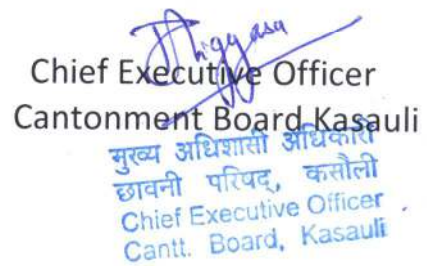 Chief Executive Officer
Cantonment Board Kasauli
मुख्य अधिशासी अधिकारी
छावनी परिषद्, कसौली
Chief Executive Officer
Cantt. Board, Kasauli